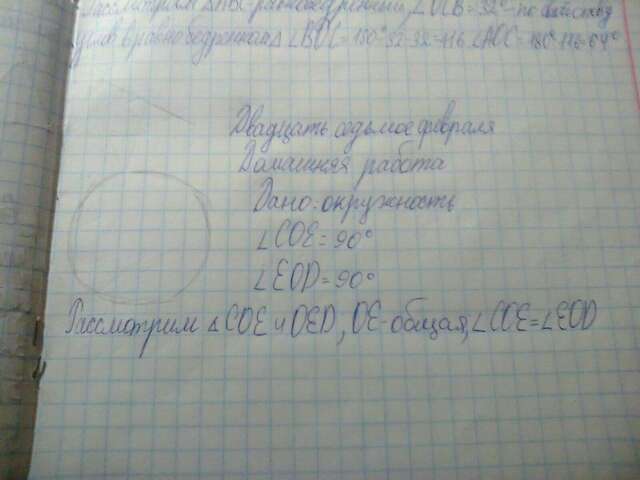 Рассмотрим △ равнобедренный, ∠ = 32° - по
углов в равнобедренном △ ∠BOC = 180°-32-32=116 ∠AOC = 180°-116=64°
Двадцать седьмое февраля
Домашняя работа
Дано: окружность
∠COE = 90°
∠EOD = 90°
Рассмотрим △ COE и OED, OE-общая, ∠COE=∠EOD